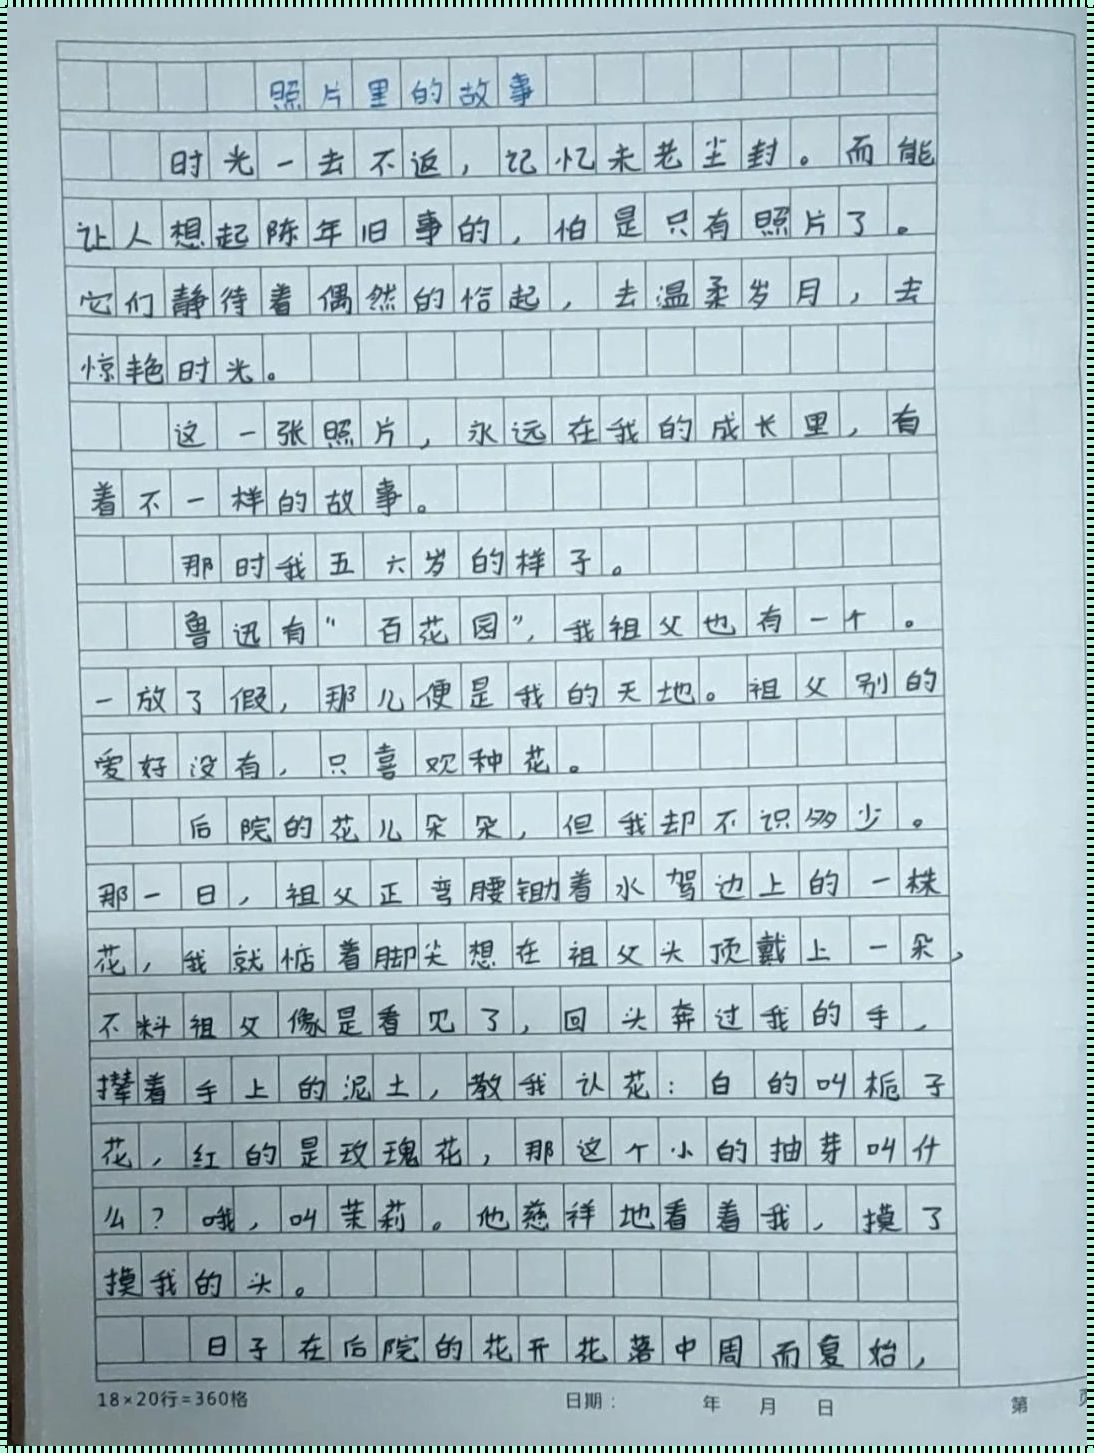 照片里的故事
时光一去不返，记忆未老尘封。而能
让人想起陈年旧事的，怕是只有照片了。
它们静待着偶然的恰起，去温柔岁月，去
惊艳时光。
这一张照片，永远在我的成长里，有
着不一样的故事。
那时我五六岁的样子。
鲁迅有“百花园”，我祖父也有一个。
一放了假，那儿便是我的天地。祖父别的
爱好没有，只喜欢种花。
后院的花儿朵朵，但我却不识多少。
那一日，祖父正弯腰锄着水驾边上的一株
花，我就惦着脚尖想在祖父头顶戴上一朵，
不料祖父像是看见了，回头奔过我的手，
撵着手上的泥土，教我认花：白的叫栀子
花，红的是玫瑰花，那这个小的抽芽叫什
么？哦，叫茉莉。他慈祥地看着我，摸了
摸我的头。
日子在后院的花开花落中周而复始，
18×20行=360格 日期： 年 月 日 第 页